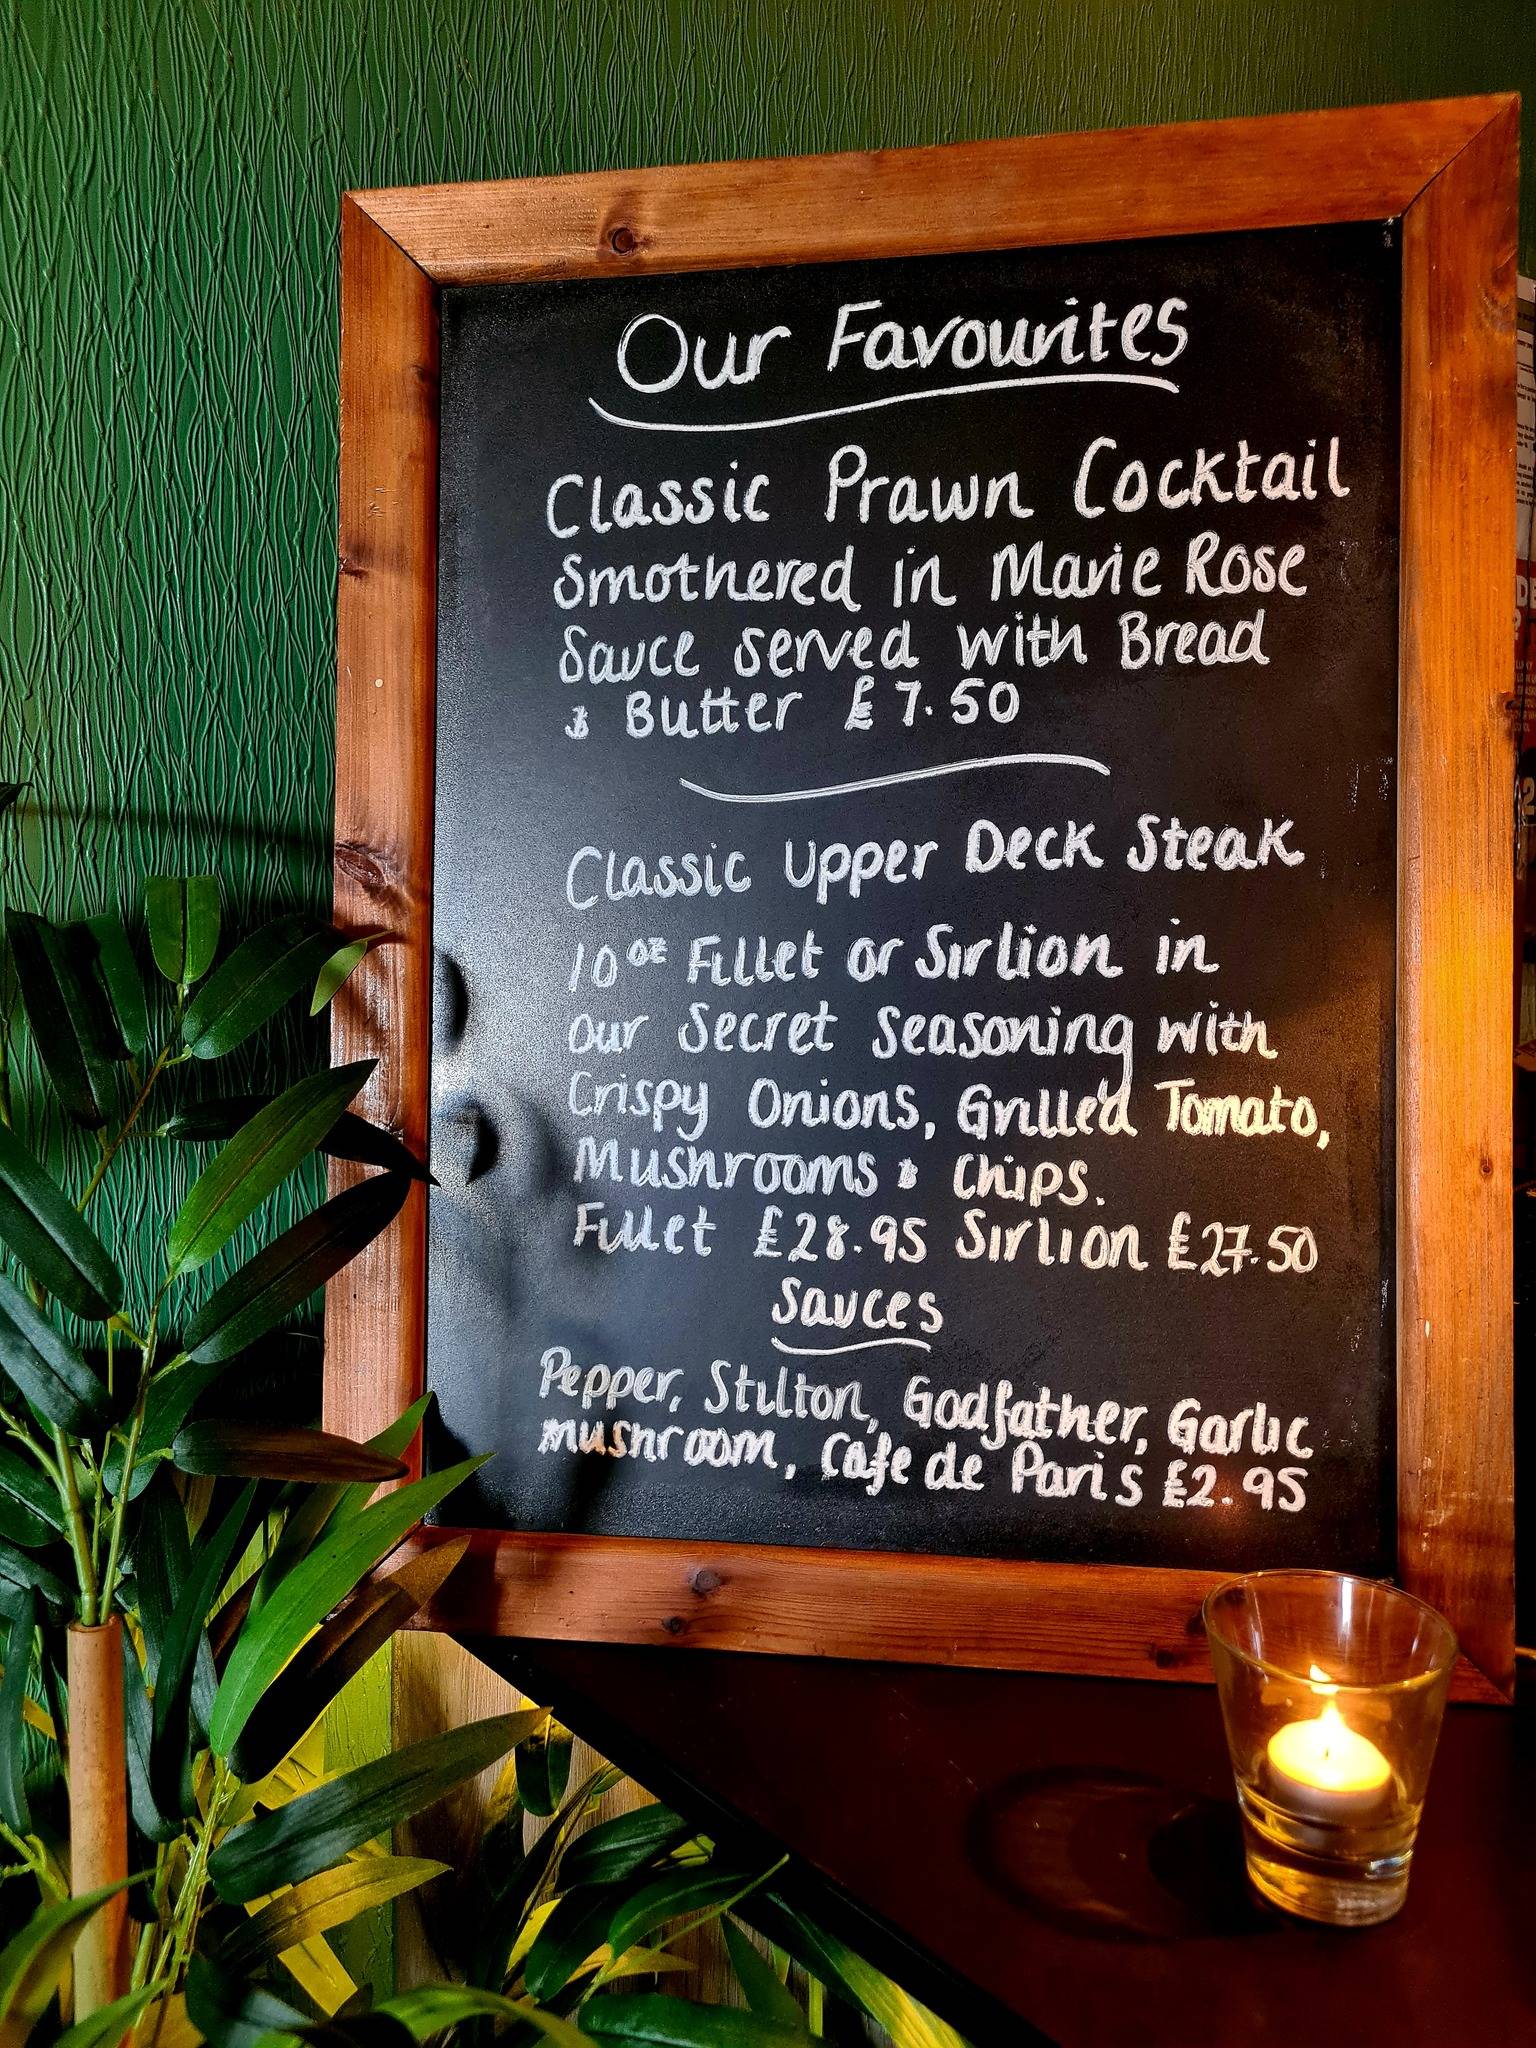 Our Favourites
Classic Prawn Cocktail
Smothered in Marie Rose
Sauce served with Bread
& Butter £7.50
Classic Upper Deck Steak
10oz Fillet or Sirlion in
our Secret Seasoning with
Crispy Onions, Grilled Tomato,
Mushrooms & Chips.
Fillet £28.95 Sirlion £27.50
Sauces
Pepper, Stilton, Godfather, Garlic
mushroom, Cafe de Paris £2.95